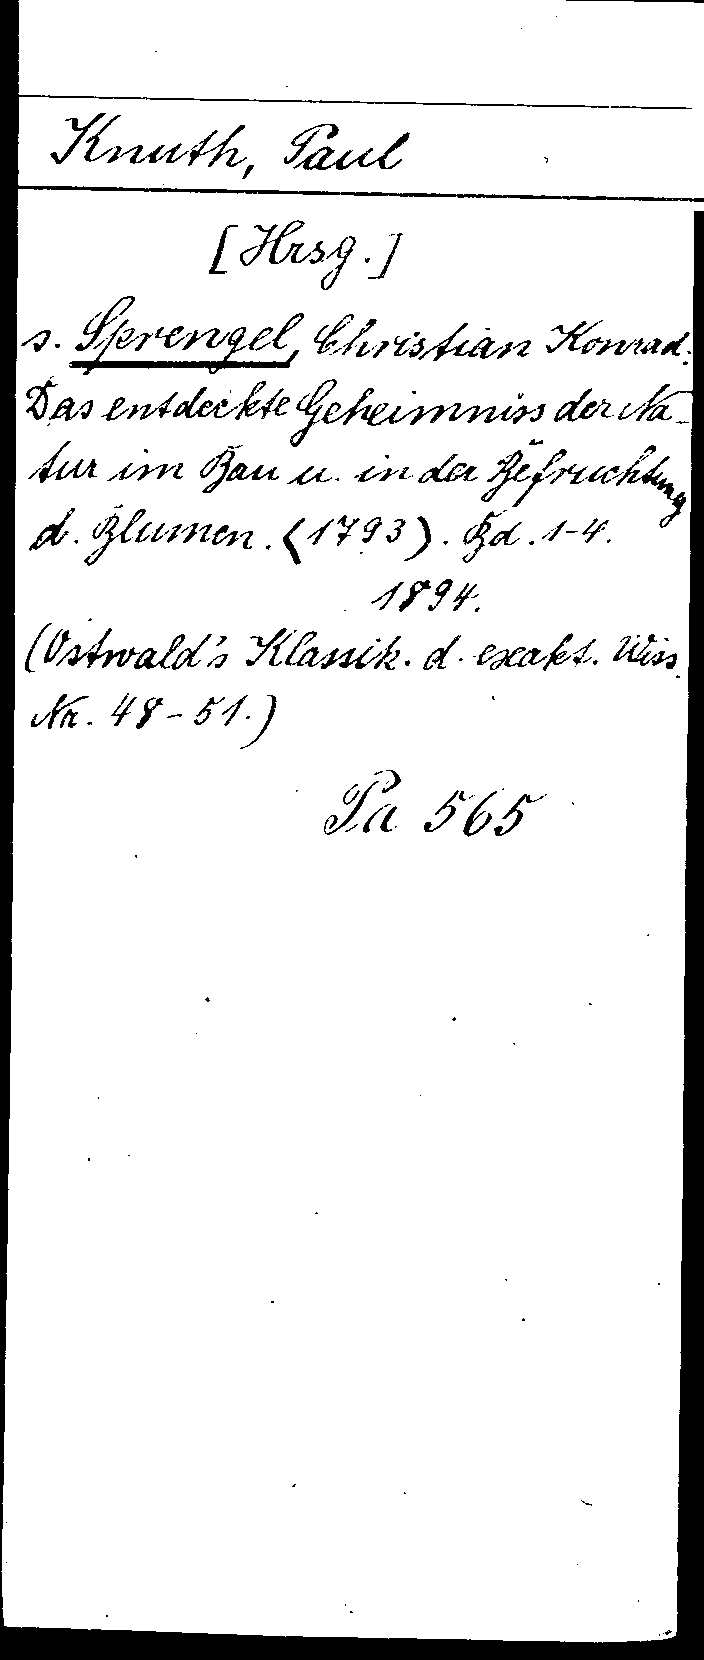 Knuth, Paul
[Hrsg.]
s. Sprengel, Christian Konrad:
Das entdeckte Geheimniss der Na-
tur im Bau u. in der Befruchtung
d. Blumen. (1793). Bd. 1-4.
1894.
(Ostwald's Klassik. d. exakt. Wiss.
Nr. 48-51.)
Pa 565